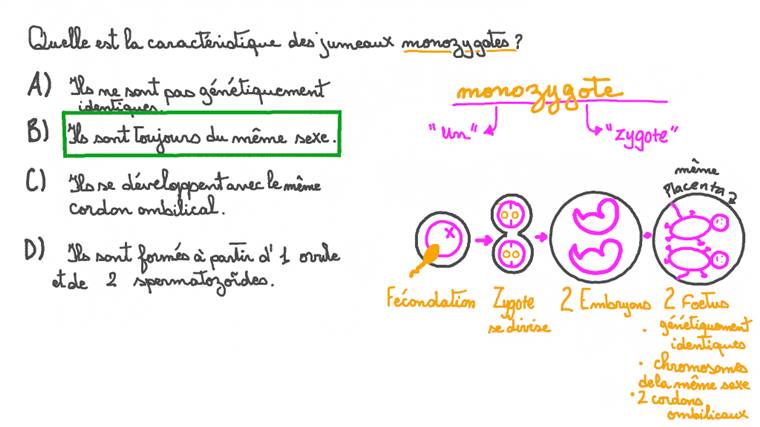 Quelle est la caractéristique des jumeaux monozygotes ?
A) Ils ne sont pas génétiquement
identiques.
B) Ils sont toujours du même sexe.
C) Ils se développent avec le même
cordon ombilical.
D) Ils sont formés à partir d' 1 ovule
et de 2 spermatozoïdes.
monozygote
"un" "zygote"
même
Placenta
Fécondation
Zygote
se divise
2 Embryons
2 Foetus
. génétiquement
identiques
. chromosomes
de la même sexe
. 2 cordons
ombilicaux